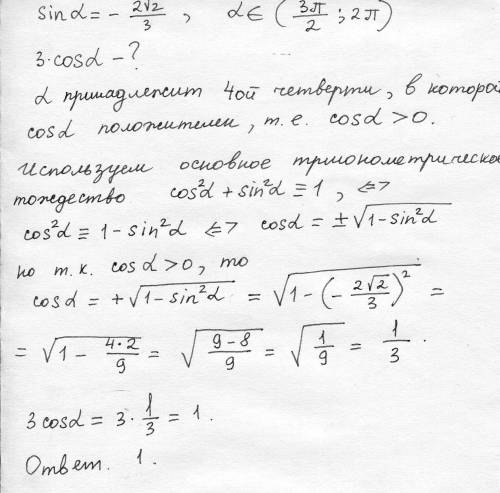 sinα = - 2√2/3 , α ∈ (3π/2 ; 2π)
3·cosα - ?
α принадлежит 4ой четверти, в которой
cosα положителен, т.е. cosα > 0.
Используем основное тригонометрическое
тождество cos²α + sin²α ≡ 1 , <=>
cos²α ≡ 1 - sin²α <=> cosα = ±√(1-sin²α)
но т.к. cosα > 0, то
cosα = +√(1-sin²α) = √(1-(-2√2/3)²) =
= √(1 - 4·2/9) = √((9-8)/9) = √(1/9) = 1/3 .
3cosα = 3·1/3 = 1 .
Ответ. 1 .